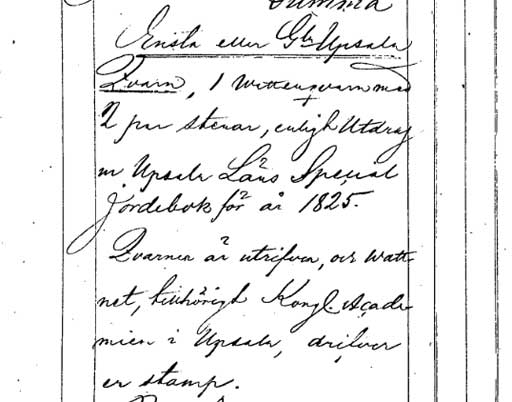 Summa
Ensta eller Gla Upsala
Qvarn, 1 Wattenqvarn med
2 par stenar, enligh Utdrag
ur Upsala Läns Special
Jordebok för år 1825.
Qvarnen är utrifven, och watt-
net, tillhörigh Kongl. Acade-
mien i Upsala, drifver
en stamp.